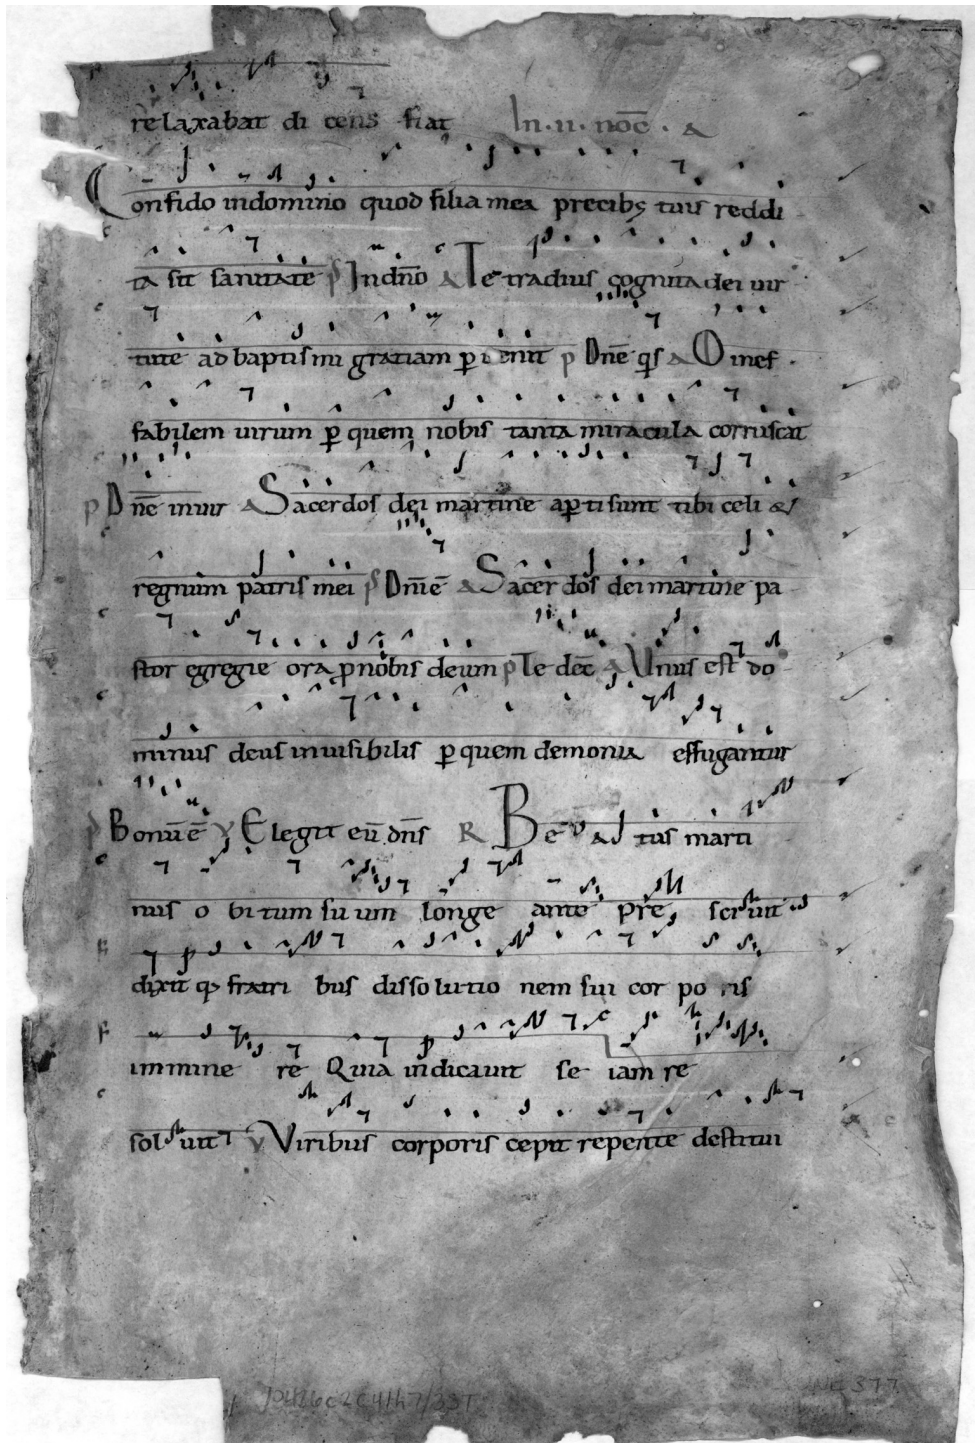 relaxabat di cens fiat In · ii · noc̄ . a
Confido in domino quod filia mea precibꝫ tuis reddi
ta sit sanitate p̄ In dn̄o a Te tradius cognita dei vir
tute ad baptismi gratiam ꝑuenit p Dnē qs a O inef
fabilem uirum ꝑ quem nobis tanta miracula corruscat
p Dnē in uir a Sacerdos dei martine aꝑti sunt tibi celi &
regnum patris mei p Dnī ē a Sacerdos dei martine pa
stor egregie ora p nobis deum p Te dec̄ a Unus est do
minus deus inuisibilis ꝑ quem demonia effugantur
p Bonū ē v Elegit eū dn̄s R Be a tus marti
nus o bi tum su um longe ante pre sciuit
dixit qꝫ fratri bus dissolutio nem sui cor po ris
immine re Quia indicauit se iam re
solui v Viribus corporis cepit repente destitui
NC 377